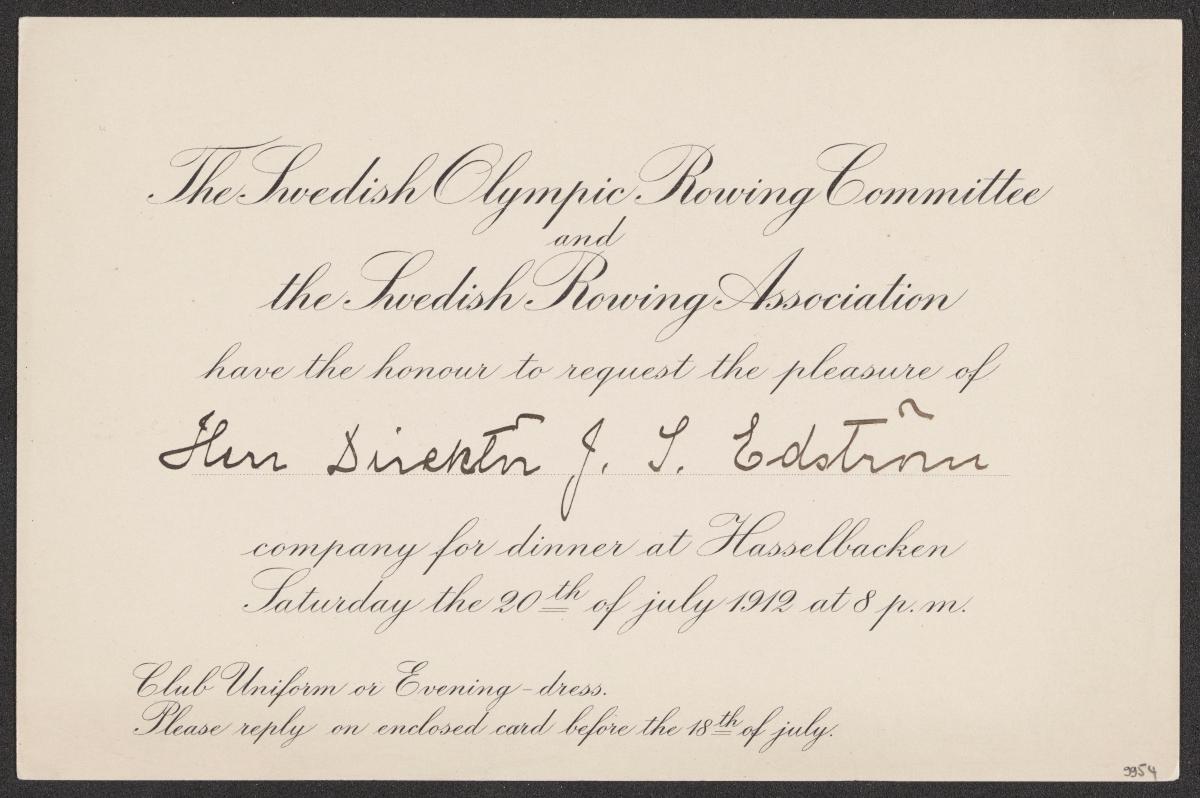 The Swedish Olympic Rowing Committee
and
the Swedish Rowing Association
have the honour to request the pleasure of
Herr Direktör J. S. Edström
company for dinner at Hasselbacken
Saturday the 20th of july 1912 at 8 p.m.
Club Uniform or Evening-dress.
Please reply on enclosed card before the 18th of july.
9954